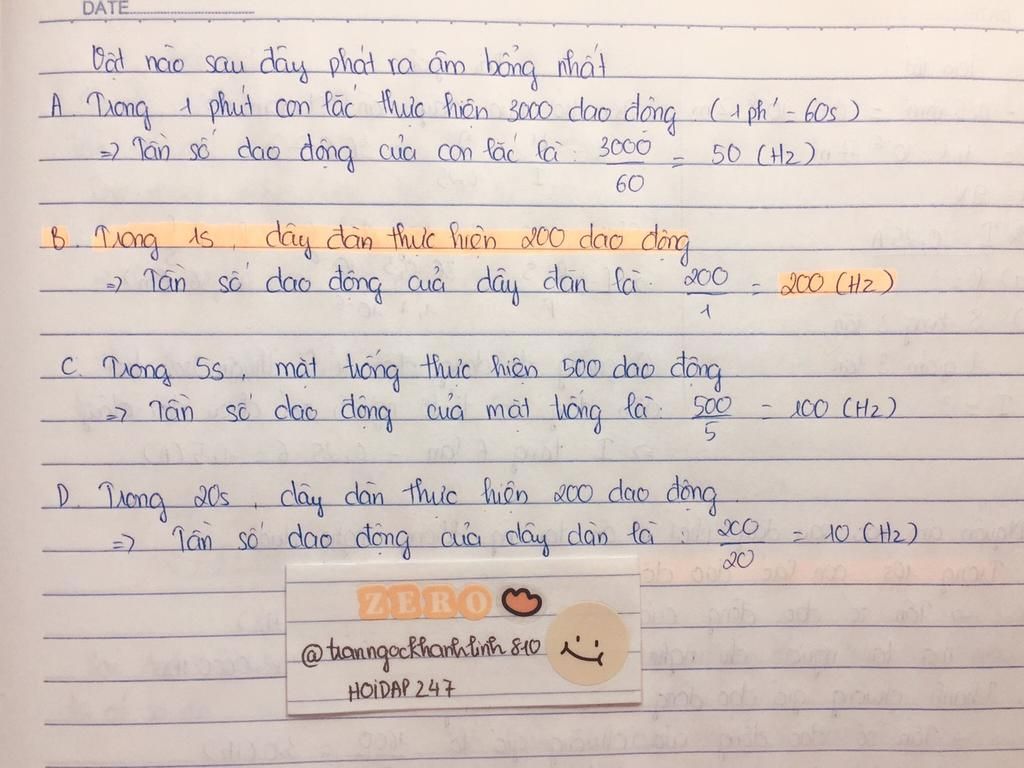 DATE
Vật nào sau đây phát ra âm bổng nhất
A. Trong 1 phút con lắc thực hiện 3000 dao động (1 ph' = 60s)
=> Tần số dao động của con lắc là: 3000/60 = 50 (Hz)
B. Trong 1s, dây đàn thực hiện 200 dao động
=> Tần số dao động của dây đàn là: 200/1 = 200 (Hz)
C. Trong 5s, mặt trống thực hiện 500 dao động
=> Tần số dao động của mặt trống là: 500/5 = 100 (Hz)
D. Trong 20s, dây đàn thực hiện 200 dao động
=> Tần số dao động của dây đàn là: 200/20 = 10 (Hz)
ZERO
@tranngockhanhlinh810
HOIDAP 247